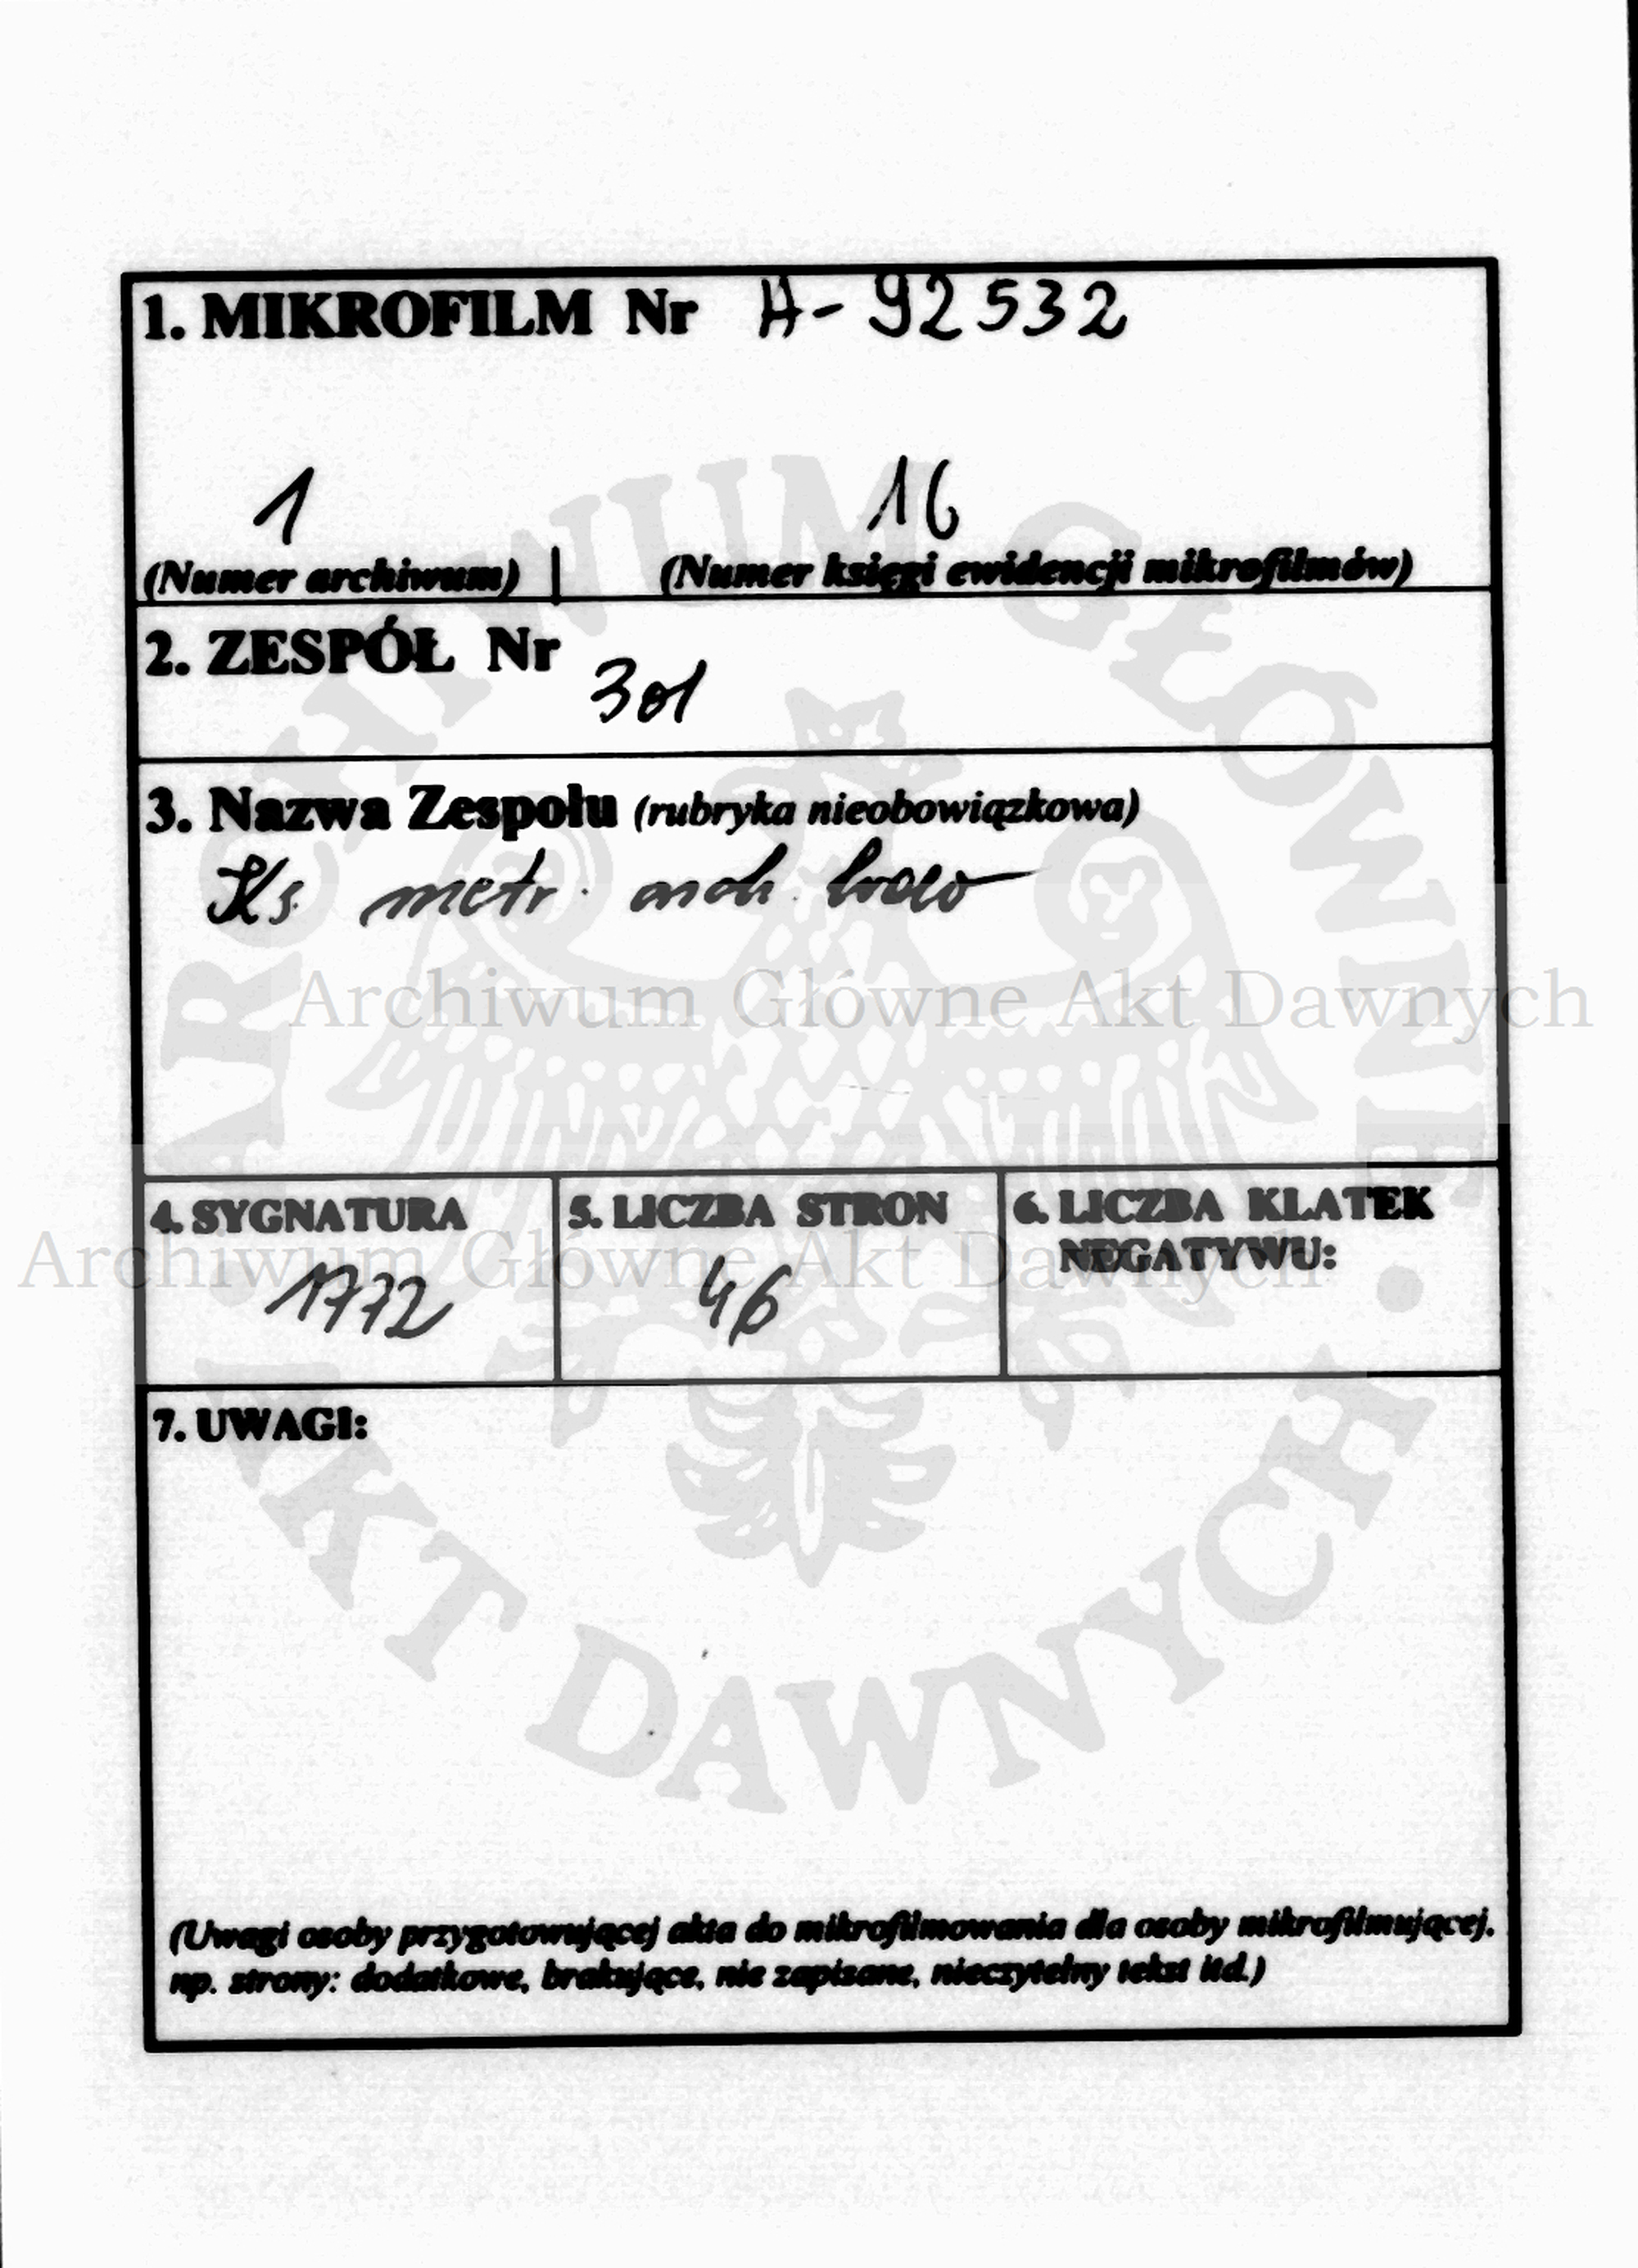 1. MIKROFILM Nr A-92532
1 16
(Numer archiwum) | (Numer księgi ewidencji mikrofilmów)
2. ZESPÓŁ Nr
301
3. Nazwa Zespołu (rubryka nieobowiązkowa)
Ks. metr.
Archiwum Główne Akt Dawnych
4. SYGNATURA 5. LICZBA STRON 6. LICZBA KLATEK
NEGATYWU:
Archiwum Główne Akt Dawnych
1772 46
7. UWAGI:
ARCHIWUM GŁÓWNE • AKT DAWNYCH •
(Uwagi osoby przygotowującej akta do mikrofilmowania dla osoby mikrofilmującej,
np. strony: dodatkowe, brakujące, nie zapisane, nieczytelny tekst itd.)